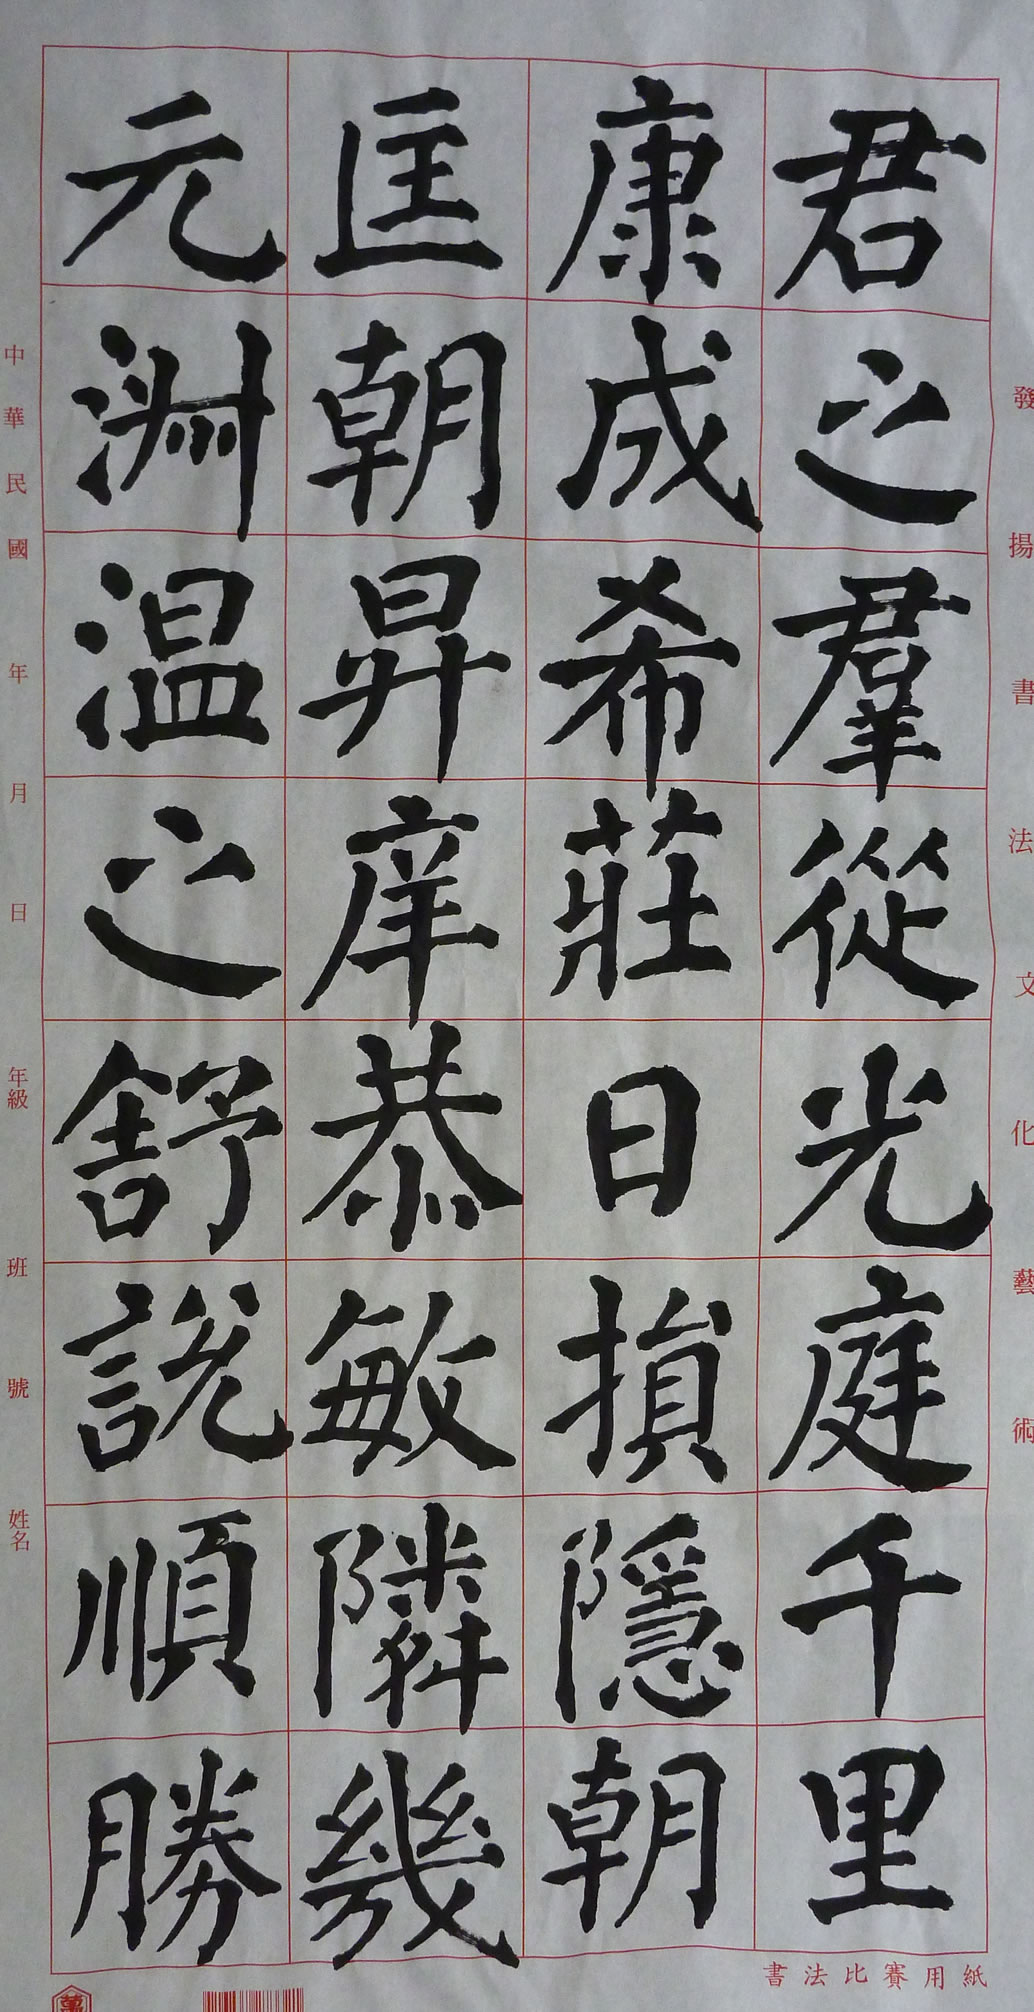 君之羣從光庭千里
康成希莊日損隱朝
匡朝昇庠恭敏隣幾
元淵温之舒說順勝
發揚書法文化藝術
中華民國 年 月 日 年級 班 號 姓名
書法比賽用紙